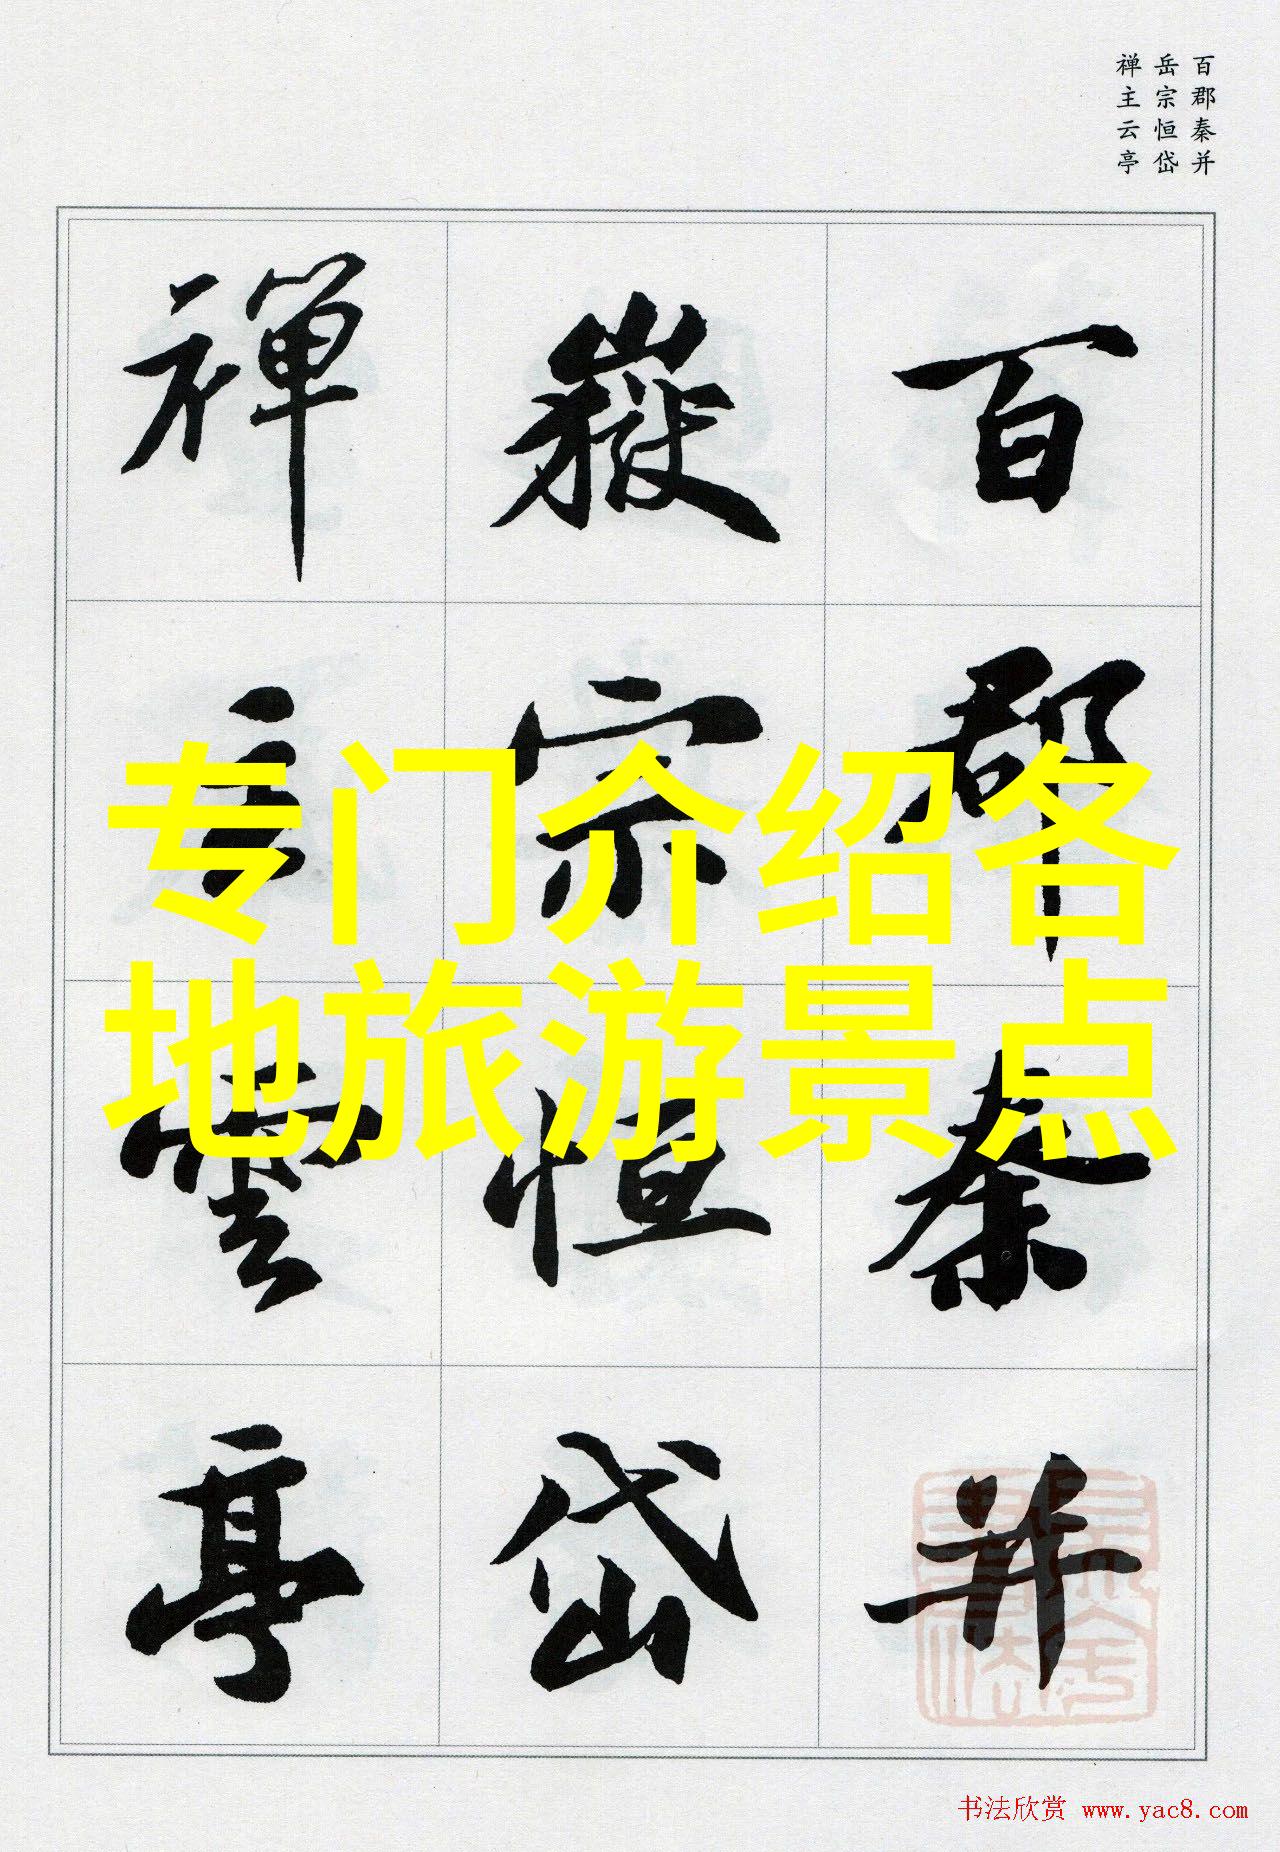 百郡秦并
岳宗恒岱
禅主云亭
百郡秦并
嶽宗恒岱
禅主雲亭
专门介绍各
地旅游景点
书法欣赏 www.yac8.com